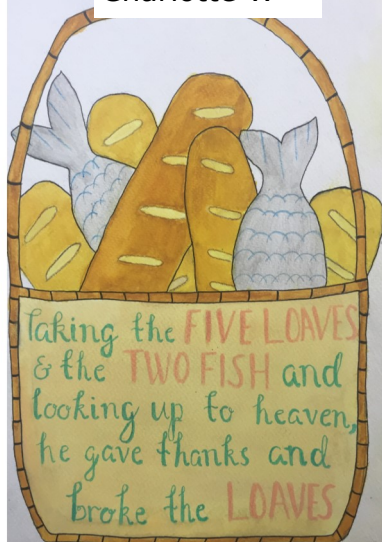 Taking the FIVE LOAVES
& the TWO FISH and
looking up to heaven,
he gave thanks and
broke the LOAVES